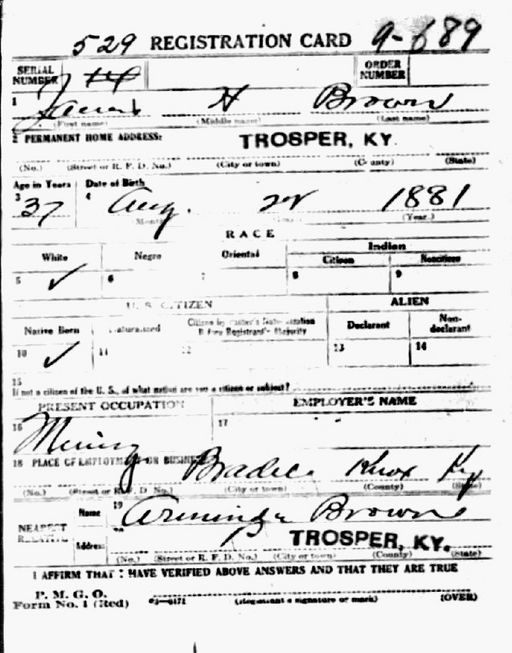 529 REGISTRATION CARD 9-689
SERIAL NUMBER ORDER NUMBER
1 H Brown
(First name) (Middle name) (Last name)
2 PERMANENT HOME ADDRESS: TROSPER, KY.
(No.) (Street or R. F. D. No.) (City or town) (County) (State)
Age in Years Date of Birth
3 37 4 Aug. 1881
(Year.)
RACE
White Negro Oriental Indian
Citizen Noncitizen
5 ✓ 6 7 8 9
U. S. CITIZEN ALIEN
Native Born Naturalized Citizen by Father's Naturalization Before Registrant's Majority Declarant Non-declarant
10 ✓ 11 12 13 14
15
If not a citizen of the U. S., of what nation are you a citizen or subject?
PRESENT OCCUPATION EMPLOYER'S NAME
16 Mining 17
18 PLACE OF EMPLOYMENT OR BUSINESS Knox Ky
(No.) (Street or R. F. D. No.) (City or town) (County) (State)
NEAREST RELATIVE
Name 19 Brown
Address TROSPER, KY.
(No.) (Street or R. F. D. No.) (City or town) (County) (State)
I AFFIRM THAT I HAVE VERIFIED ABOVE ANSWERS AND THAT THEY ARE TRUE
P. M. G. O.
Form No. 1 (Red) 03-6171 (Registrant's signature or mark) (OVER)